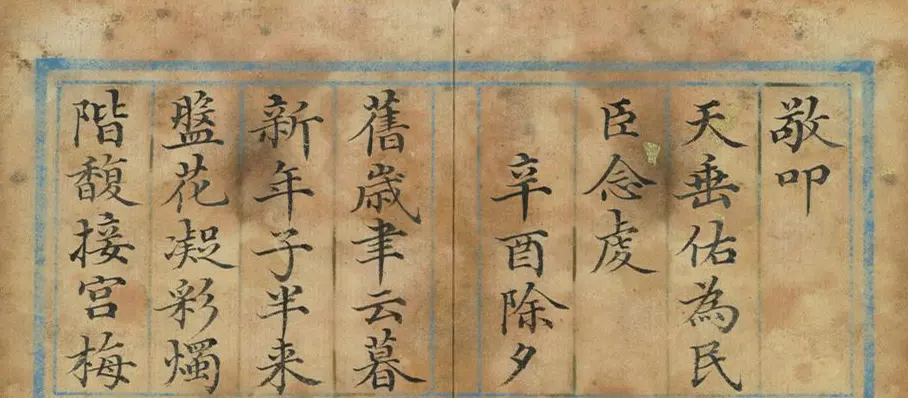 敬叩
天垂佑為民
臣念虔
辛酉除夕
舊歲聿云暮
新年子半来
盤花凝彩燭
階馥接宮梅